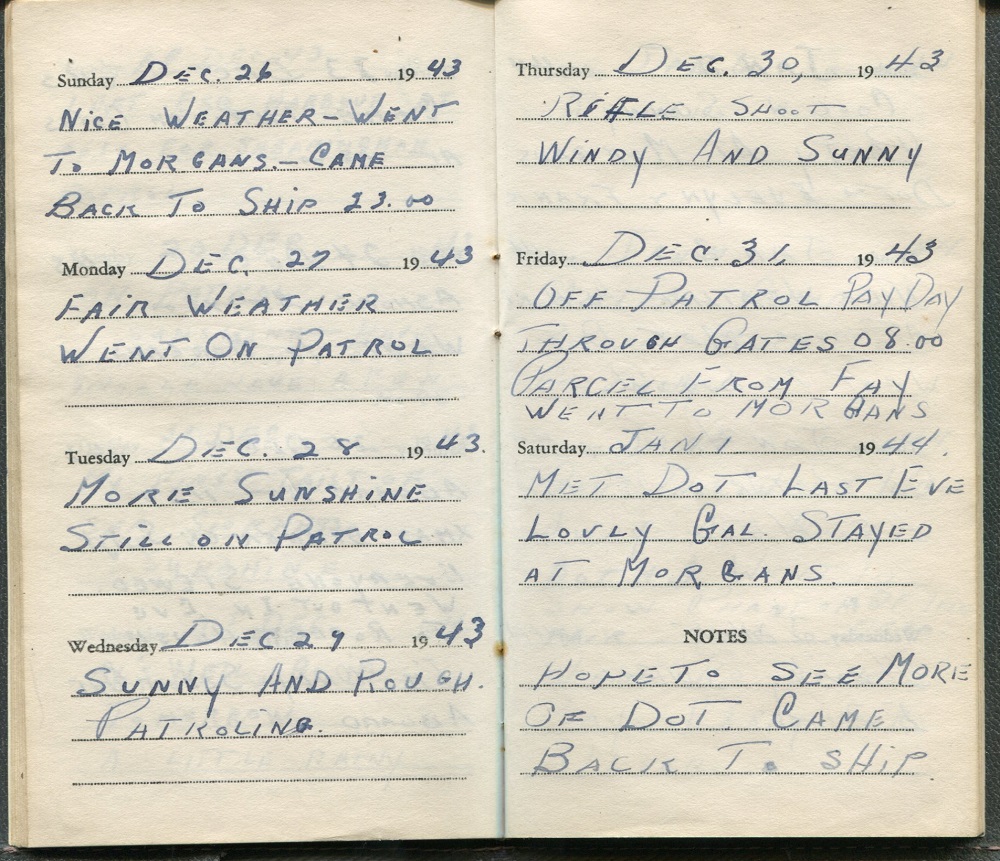 Sunday DEC. 26 1943
NICE WEATHER - WENT
TO MORGANS. - CAME
BACK TO SHIP 23.00
Monday DEC. 27 1943
FAIR WEATHER
WENT ON PATROL
Tuesday DEC. 28 1943.
MORE SUNSHINE
STILL ON PATROL
Wednesday DEC 29 1943
SUNNY AND ROUGH.
PATROLING.
Thursday DEC. 30, 1943
RIFLE SHOOT
WINDY AND SUNNY
Friday DEC. 31, 1943
OFF PATROL PAY DAY
THROUGH GATES 08.00
PARCEL FROM FAY
WENT TO MORGANS
Saturday JAN 1 1944.
MET DOT LAST EVE
LOVLY GAL. STAYED
AT MORGANS.
NOTES
HOPE TO SEE MORE
OF DOT CAME
BACK TO SHIP.